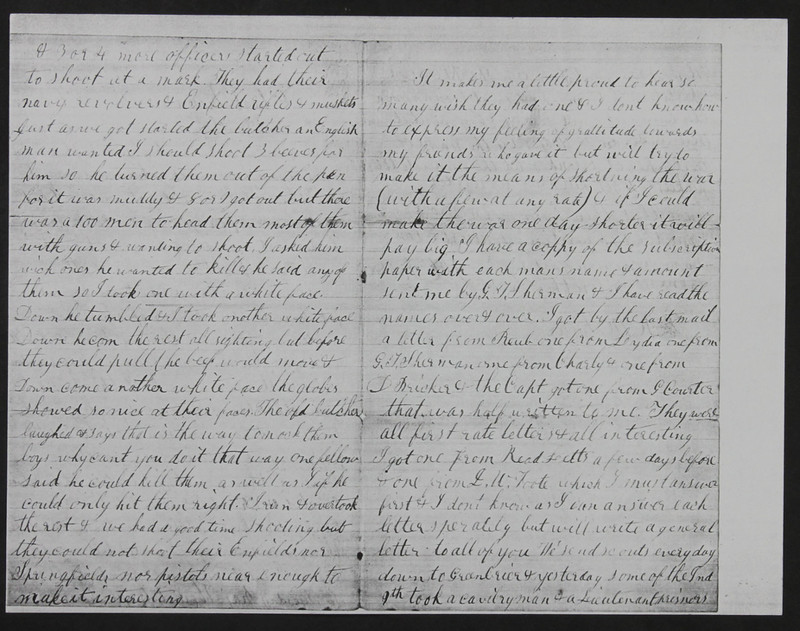 & 3 or 4 more officers started out
to shoot at a mark They had their
navy revolvers & Enfield rifles & muskets
Just as we got started the butcher an English
man wanted I should shoot 3 beeves for
him so he turned them out of the pen
for it was muddy & 8 or 9 got out but there
was a 100 men to head them most of them
with guns & wanting to shoot I asked him
wich ones he wanted to kill & he said any of
them so I took one with a white face.
Down he tumbled & I took another white face
Down he com the rest all sighting but before
they could pull (the beef would move &
Down come another white face the globes
showed so nice at their faces. The old butcher
laughed & says that is the way to nock them
boys why cant you do it that way one fellow
said he could kill them as well as I if he
could only hit them right. I ran & overtook
the rest & we had a good time shooting but
they could not shoot their Enfields nor
Springfields nor pistols near enough to
make it interesting
It makes me a little proud to hear so
many wish they had one & I dont know how
to express my feeling of grattitude towards
my friends who gave it but will try to
make it the means of shortning the war
(with a few at any rate) & if I could
make the war one day shorter it will
pay big I have a coppy of the subscription
paper with each mans name & amount
sent me by G. T. Sherman & I have read the
names over & over. I got by the last mail
a letter from Reub one from Lydia one from
G. T. Sherman one from Charly & one from
& the Capt got one from G Courter
that was half written to me. They were
all first rate letters & all interesting
I got one from Read & a few days before
& one from Foote which I must answer
first & I dont know as I can answer each
letter sperately but will write a general
letter to all of you We send scouts every day
down to Granbrier & yesterday some of the Ind
9th took a cavilry man & a Lieutenant prisners